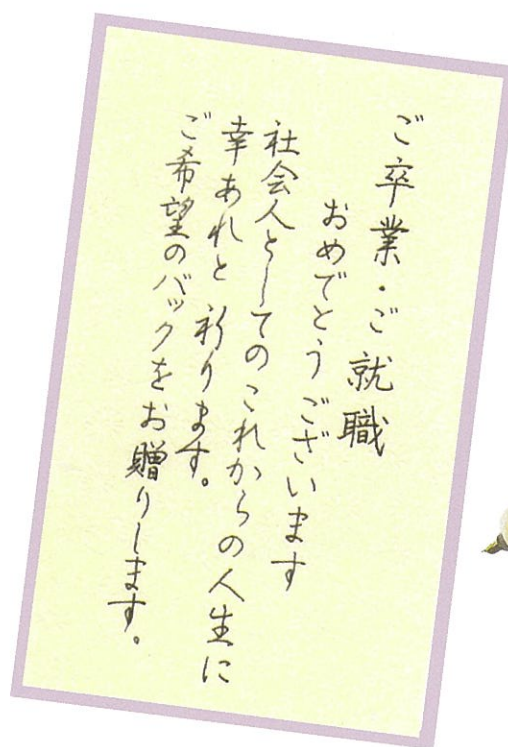 ご卒業・ご就職
おめでとうございます
社会人としてのこれからの人生に
幸あれと祈ります。
ご希望のバックをお贈りします。